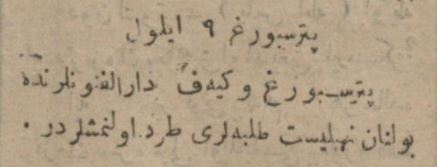 پترسبورغ ٩ ايلول
پتريسبورغ و كيەف دارالفنونلرنده
بولنان نهيليست طلبەلرى طرد اولنمشلردر .